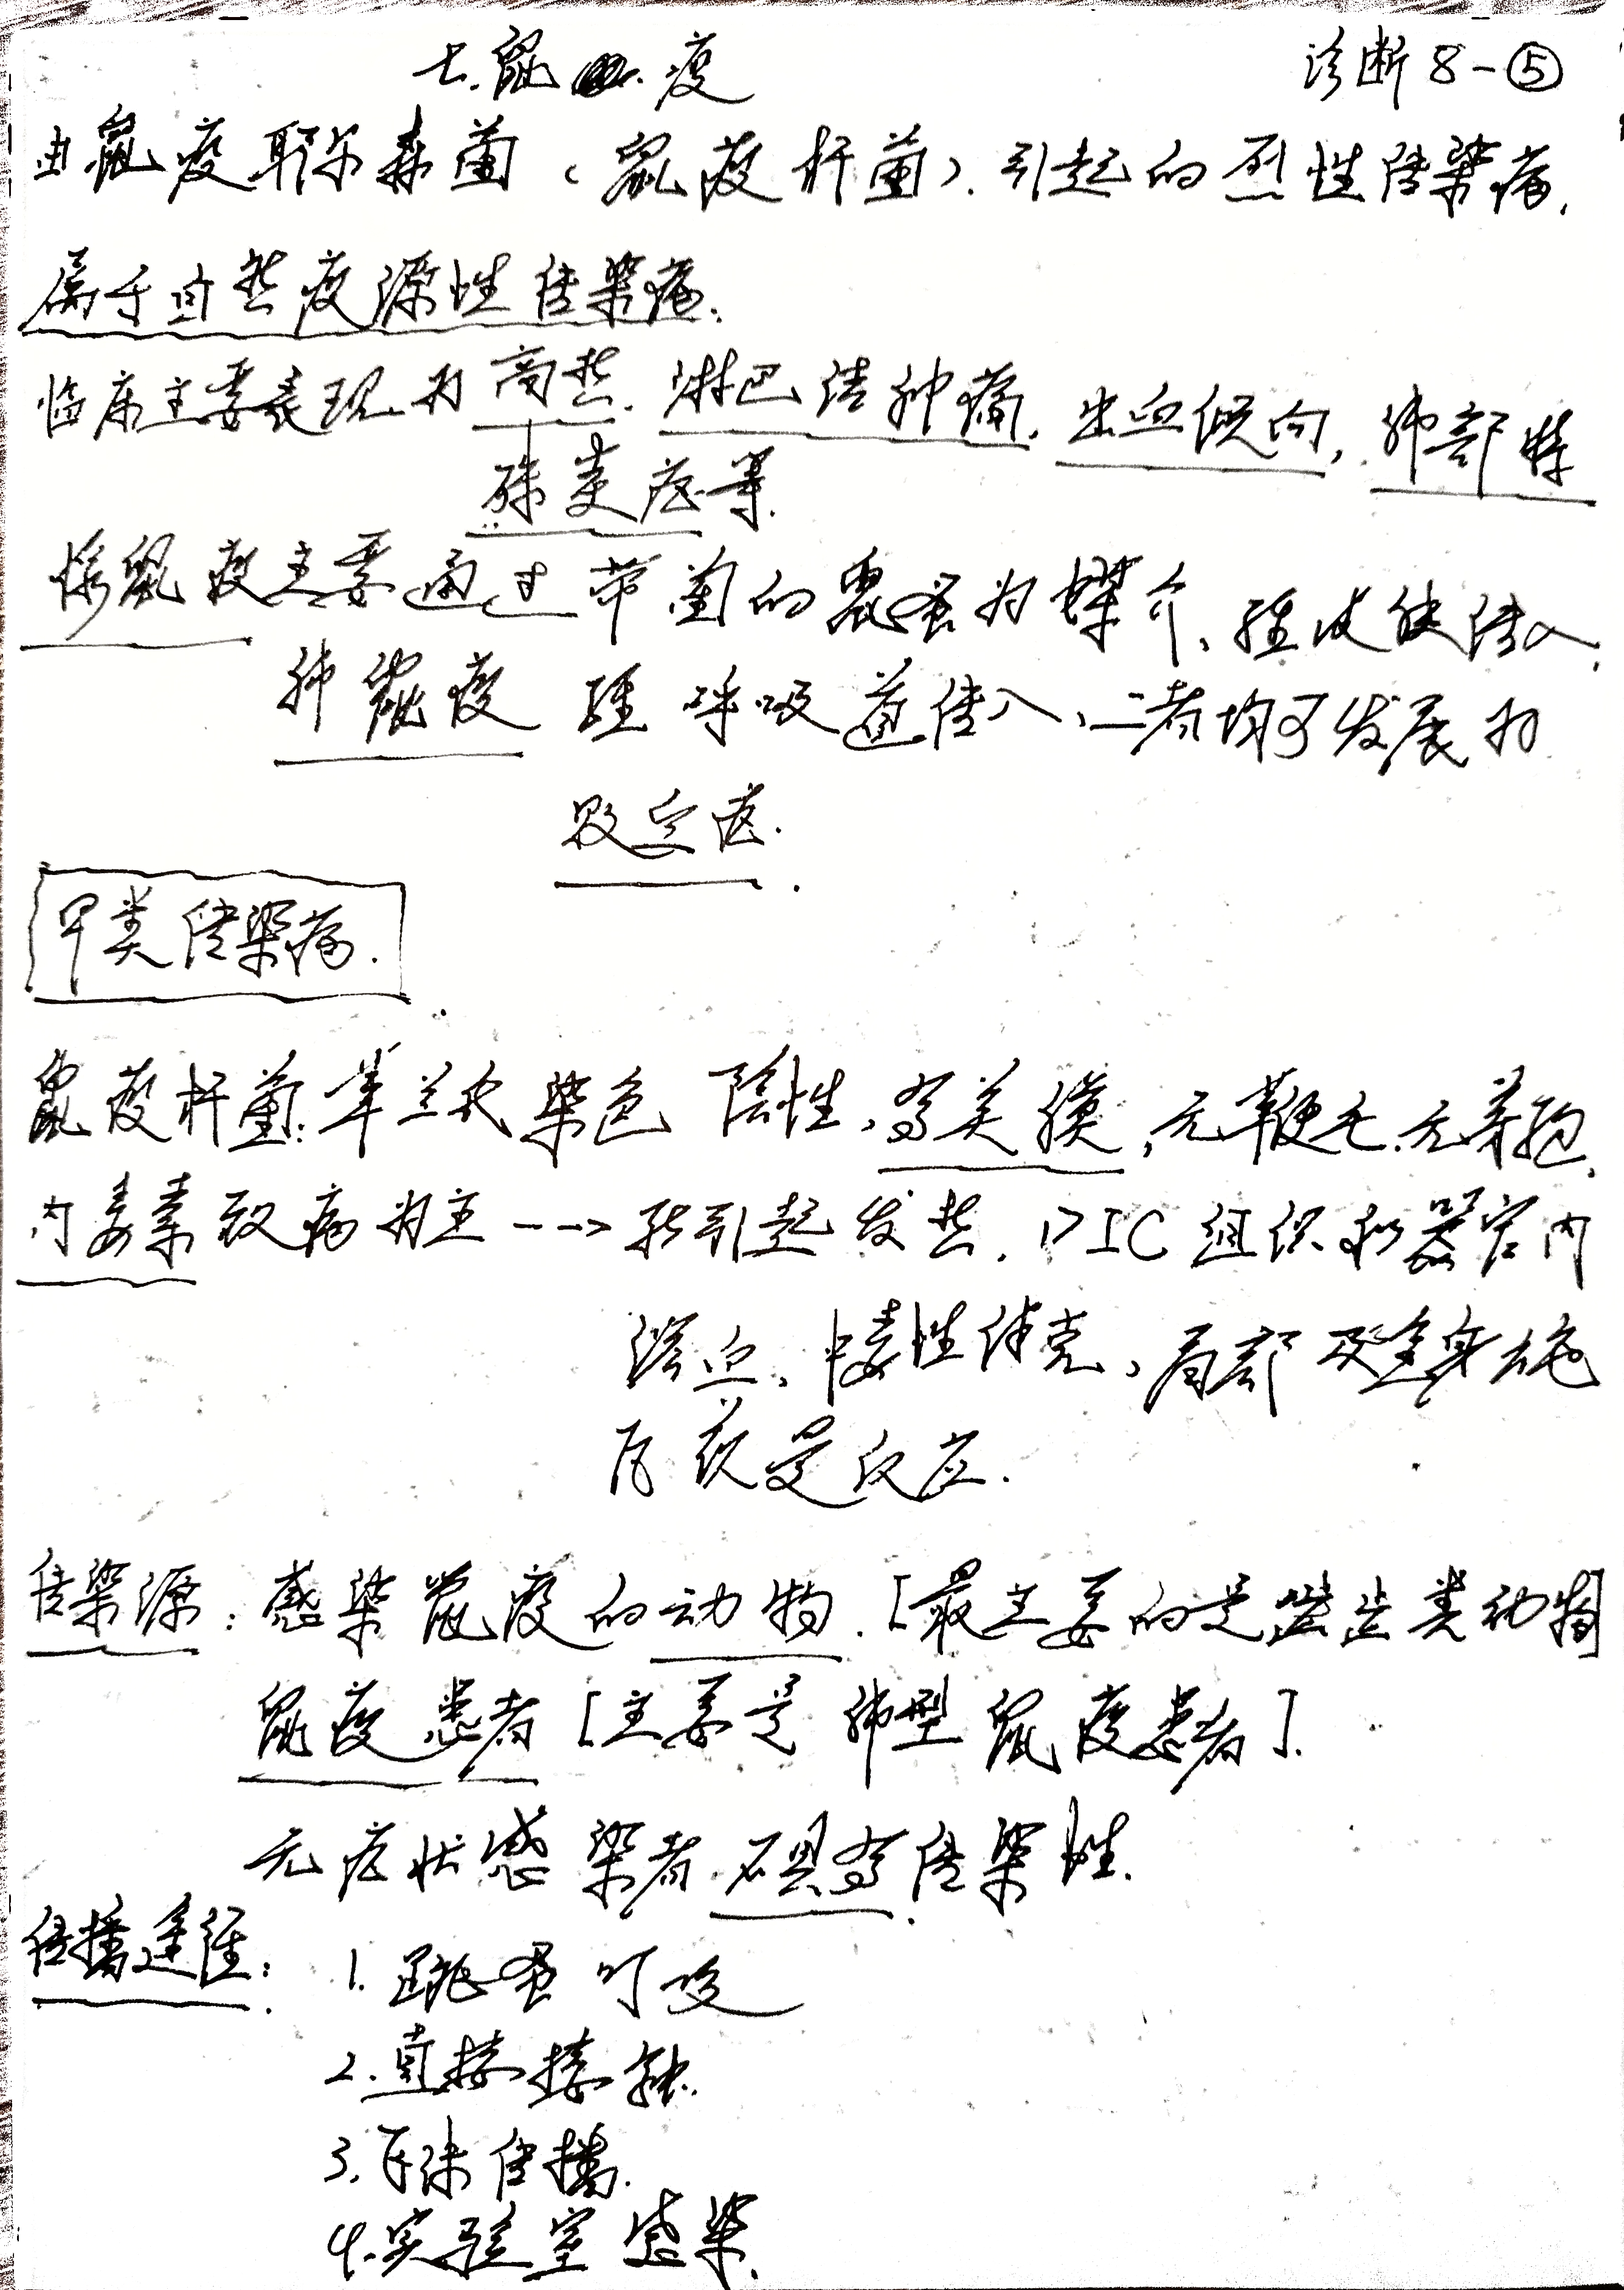 七.鼠疫
诊断8-⑤
由鼠疫耶尔森菌(鼠疫杆菌).引起的烈性传染病,
属于自然疫源性传染病.
临床主要表现为高热.淋巴结肿痛.出血倾向,肺部特
殊炎症等.
腺鼠疫主要通过带菌的鼠蚤为媒介、经皮肤传入,
肺鼠疫 经呼吸道传入、二者均可发展为
败血症.
甲类传染病.
鼠疫杆菌:革兰氏染色 阴性,有荚膜,无鞭毛.无芽孢.
内毒素致病为主---> 能引起发热.DIC 组织和器官内
溶血、中毒性休克、局部及全身施
瓦茨曼反应.
传染源:感染鼠疫的动物.[最主要的是啮齿类动物]
鼠疫患者[主要是肺型鼠疫患者].
无症状感染者.不具有传染性.
传播途径:
1.跳蚤叮咬
2.直接接触.
3.飞沫传播.
4.实验室感染.